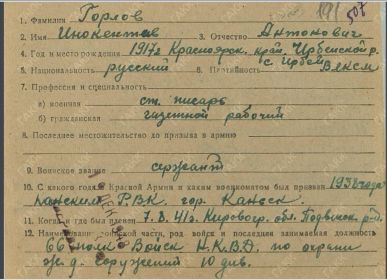 191
507
1. Фамилия Горлов
2. Имя Инокентий 3. Отчество Антонович
4. Год и место рождения 1917г. Красноярск. край, Ирбейский р.
с. Ирбей
5. Национальность русский 6. Партийность ВЛКСМ
7. Профессия и специальность
а) военная ст. писарь
б) гражданская газетной рабочий
8. Последнее местожительство до призыва в армию
9. Воинское звание сержант
10. С какого года в Красной Армии и каким военкоматом был призван 1938 года
Канским РВК гор. Канск.
11. Когда и где был пленен 7.8.41г. Кировогр. обл. Подвысок. р-й.
12. Наименование воинской части, род войск и последнее занимаемая должность
66 полк Войск Н.К.В.Д. по охрани
ж.д. сооружений 10 див.